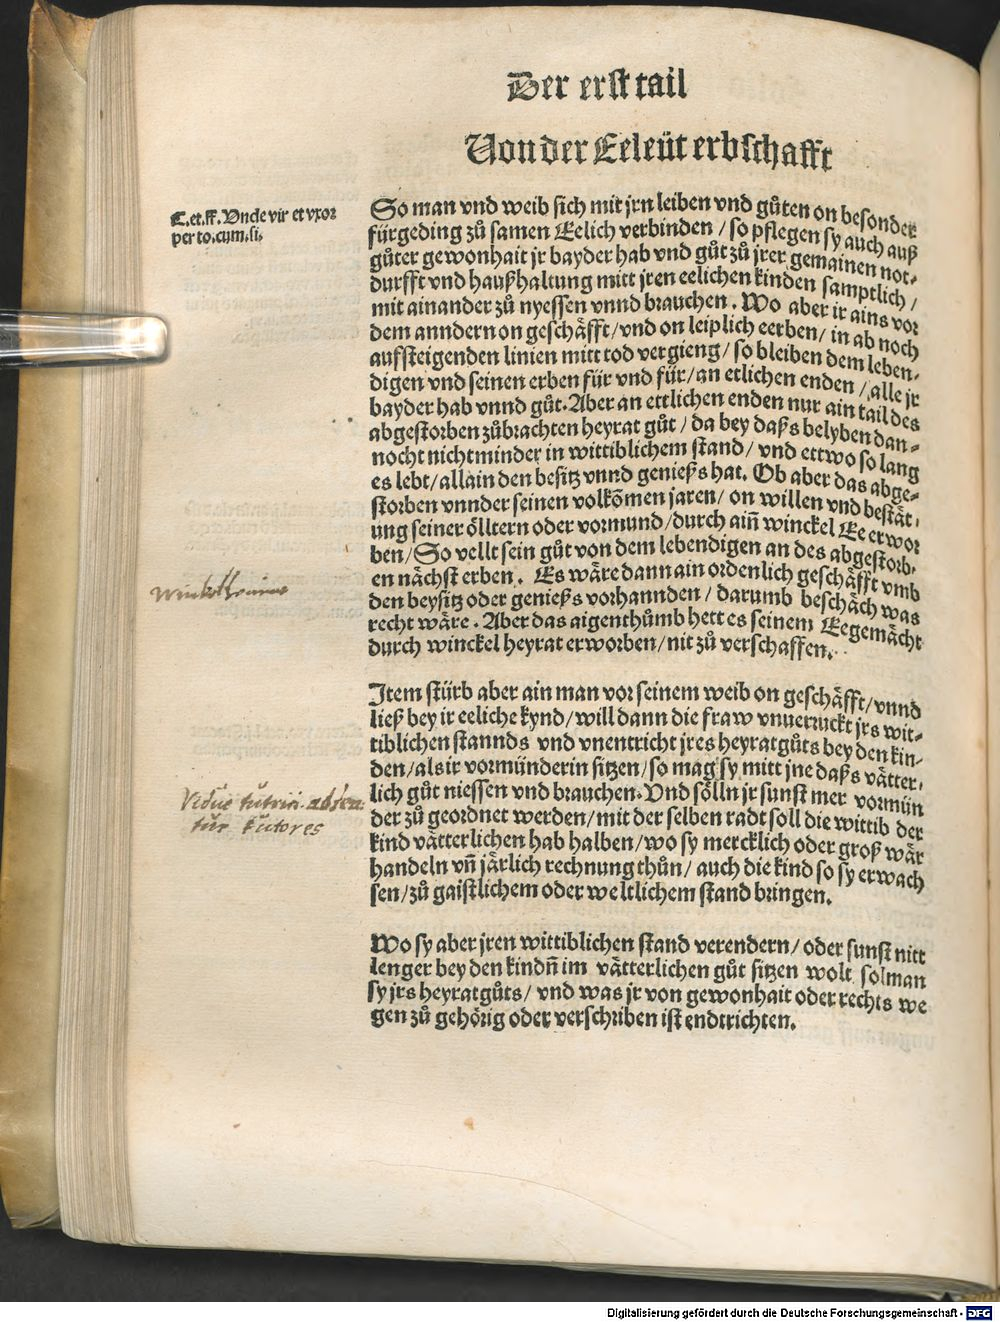 Der erst tail
Von der Eeleüt erbschafft
C. et. ff. Vnde vir et vxor
per to. cum. si.
So man vnd weib sich mit jrn leiben vnd gůten on besonder
fürgeding zů samen Eelich verbinden / so pflegen sy auch auß
gůter gewonhait jr bayder hab vnd gůt zů jrer gemainen not⸗
durfft vnd haußhaltung mitt jren eelichen kinden samptlich /
mit ainander zů nyessen vnnd brauchen. Wo aber ir ains vor
dem anndern on geschäfft / vnd on leiplich eerben / in ab noch
auffsteigenden linien mitt tod vergieng / so bleiben dem leben⸗
digen vnd seinen erben für vnd für / an etlichen enden / alle jr
bayder hab vnnd gůt. Aber an ettlichen enden nur ain tail des
abgestorben zůbrachten heyrat gůt / da bey daßs belyben dan⸗
nocht nichtminder in wittiblichem stand / vnd ettwo so lang
es lebt / allain den besitz vnnd genießs hat. Ob aber das abge⸗
storben vnnder seinen volkõmen jaren / on willen vnd bestät⸗
ung seiner ölltern oder vormund / durch aiñ winckel Ee erwor
ben / So vellt sein gůt von dem lebendigen an des abgestorb⸗
en nächst erben. Es wäre dann ain ordenlich geschäfft vmb
den beysitz oder genießs vorhannden / darumb beschäch was
recht wäre. Aber das aigenthůmb hett es seinem Eegemächt
durch winckel heyrat erworben / nit zů verschaffen.
Item stürb aber ain man vor seinem weib on geschäfft / vnnd
ließ bey ir eeliche kynd / will dann die fraw vnuerruckt jrs wit⸗
tiblichen stannds vnd vnentricht jres heyratgůts bey den kin⸗
den / als ir vormünderin sitzen / so mag sy mitt jne daßs vätter⸗
lich gůt niessen vnd brauchen. Vnd sölln jr sunst mer vormün
der zů geordnet werden / mit der selben radt soll die wittib der
kind vätterlichen hab halben / wo sy mercklich oder groß wär
handeln vñ järlich rechnung thůn / auch die kind so sy erwach
sen / zů gaistlichem oder weltlichem stand bringen.
Vidue tutrici
tur tutores
Wo sy aber jren wittiblichen stand verendern / oder sunst nitt
lenger bey den kindñ im vätterlichen gůt sitzen wolt sol man
sy jrs heyratgůts / vnd was jr von gewonhait oder rechts we
gen zů gehörig oder verschriben ist endtrichten.
Digitalisierung gefördert durch die Deutsche Forschungsgemeinschaft - DFG